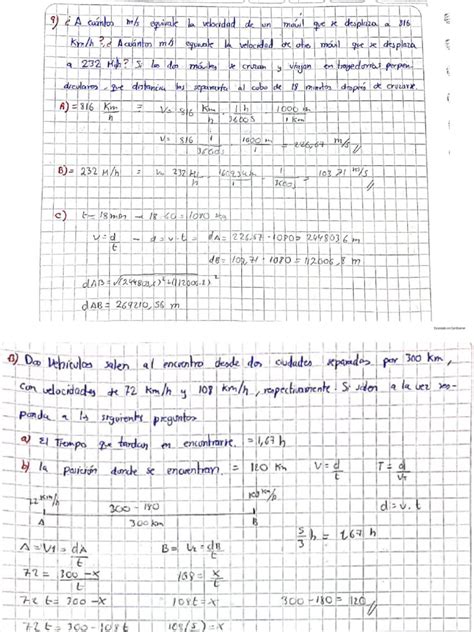 9) ¿A cuántos m/s equivale la velocidad de un móvil que se desplaza a 816
Km/h?, ¿A cuántos m/s equivale la velocidad de otro móvil que se desplaza
a 232 M/h? Si los dos móviles se cruzan y viajan en trayectorias perpen
diculares, que distancia los separaría al cabo de 18 minutos después de cruzarse.
A) = 816 Km/h = V= 816 Km/h · 1h/3600s · 1000 m/1 Km
V= 816 1/3600s · 1000 m/1 = 226,67 m/s //
B) = 232 M/h = 232 M/h · 1609,34m · 1/3600s = 103,71 m/s //
C) t= 18 min - 18·60 = 1080
V = d/t - d = v·t = dA = 226,67 · 1080 = 244803,6 m
dB = 103,71 · 1080 = 112006,8 m
dAB = √(244803,6)² + (112006,8)²
dAB = 269210,56 m
B) Dos Vehículos salen al encuentro desde dos ciudades separados por 300 Km,
con velocidades de 72 Km/h y 108 Km/h, respectivamente. Si salen a la vez res-
ponda a las siguientes preguntas
a) El Tiempo que tardan en encontrarse. = 1,67 h
b) la posición donde se encuentran. = 120 Km V = d/t T = d/v
72 Km/h 108 Km/h
300 - 180 d = v.t
A 300 km B
5/3 h = 1,67 h
A = V1 = dA/t B = V2 = dB/t
72 = 300 - x/t 108 = x/t
72 t = 300 - x 108t = x 300 - 180 = 120 //
72 t = 300 - 108 t